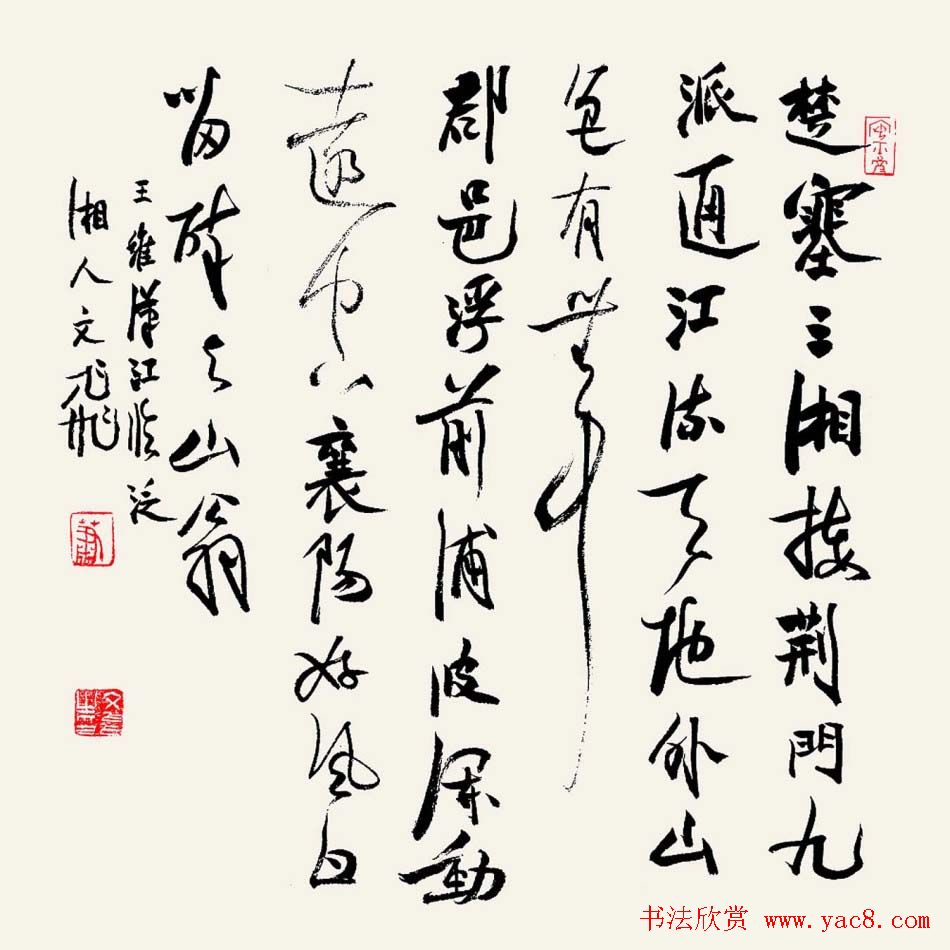 楚塞三湘接荆門九
派通江流天地外山
色有無中
郡邑浮前浦波瀾動
遠空襄陽好風日
留醉与山翁
王維漢江临泛
湘人文
书法欣赏 www.yac8.com